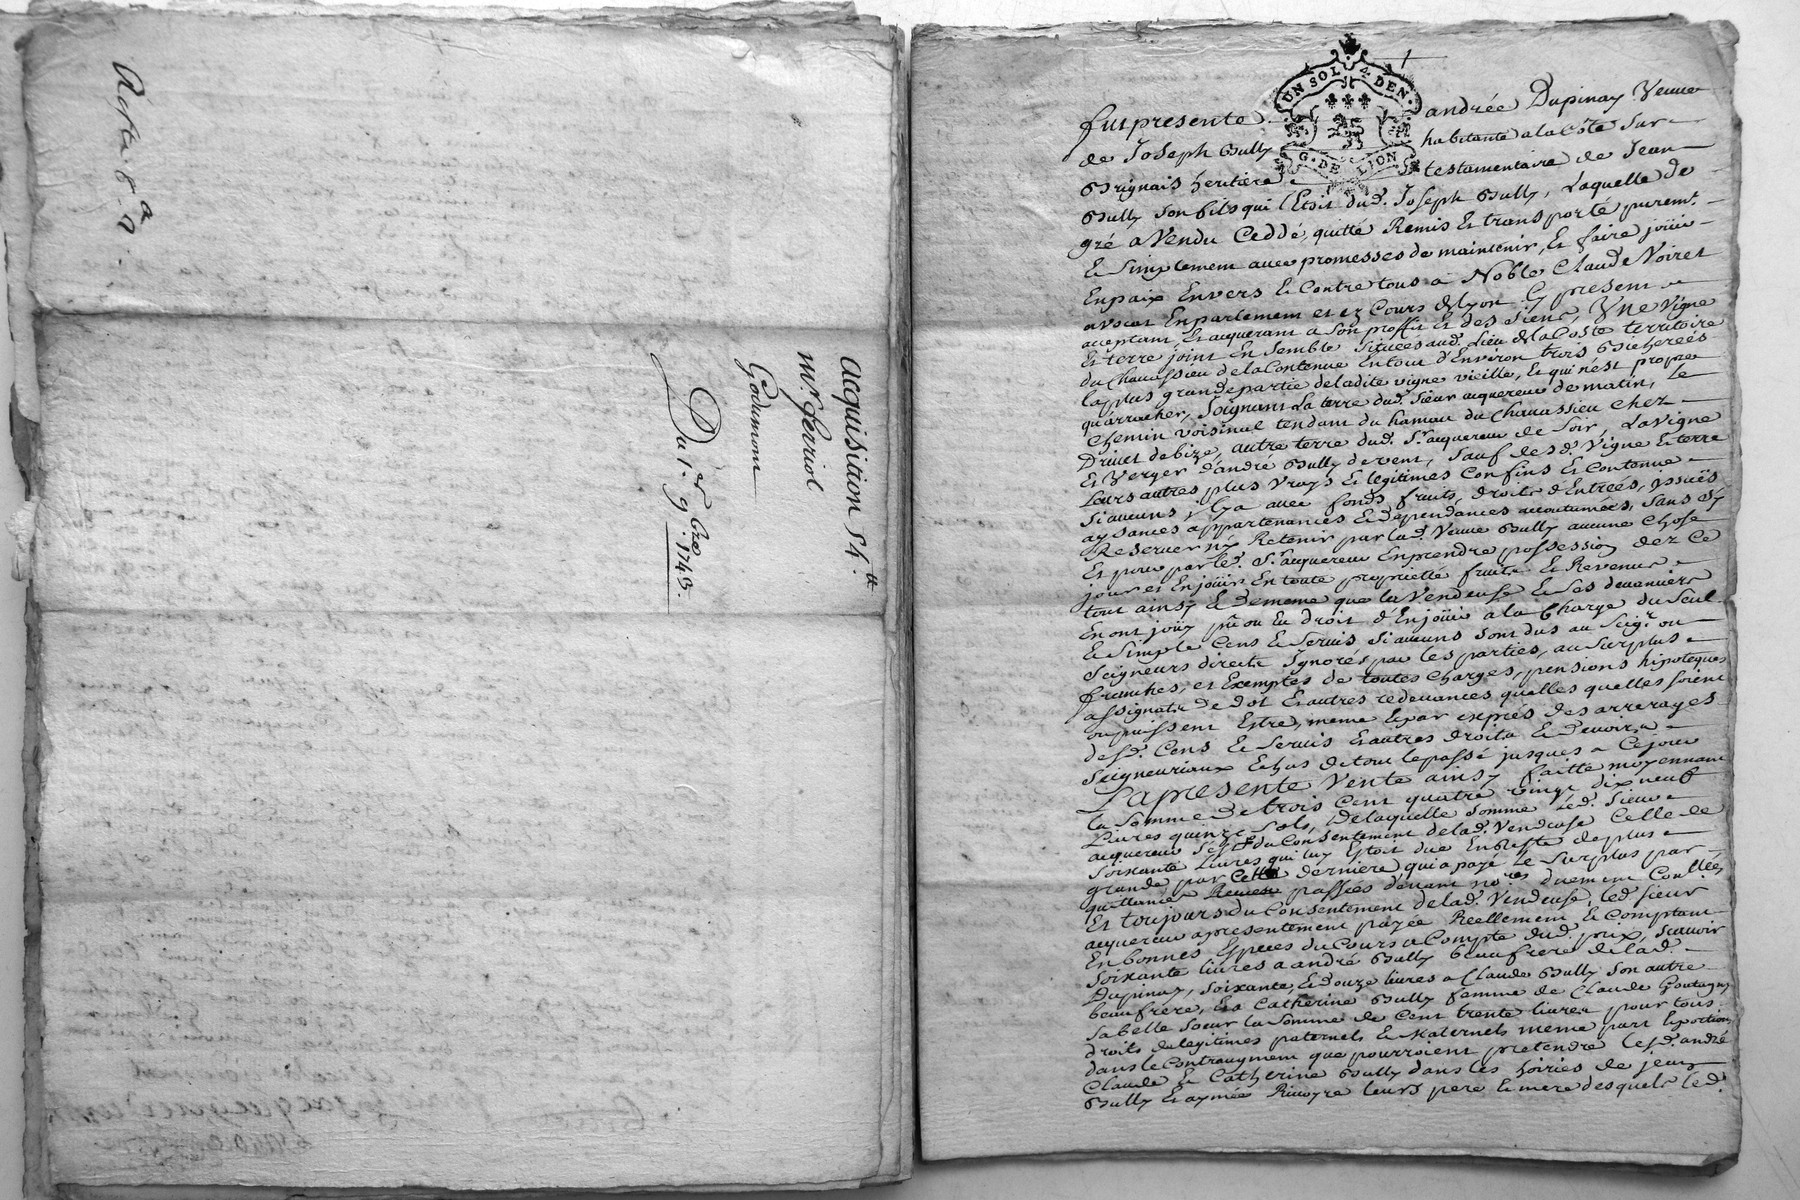 acquisition 54.tt
mr. ferriol
Godumom
Du 1er 9bre 1743.
UN SOL 4 DEN.
G. DE LION
fut presente andrée Dupinay Veuve
de Joseph Bully habitante a la Côte sur
Brignais heritiere testamentaire de Jean
Bully son fils qui l'Etoit dud. Joseph Bully, Laquelle de
gré a Vendu Ceddé, quitté Remis Et transporté puremt.
Et simplement avec promesses de maintenir, Et faire jöuir
En paix Envers Et Contre tous a Noble Claude Noiret
avocat En parlement et ez Cours de lyon Cy present
acceptant, Et acquerant a son proffit Et des siens, Vne Vigne
Et terre joint En semble Situées aud. Lieu de la Coste territoire
du Chauassieu de la Contenue En tout d'Environ trois Bicherées
la plus grande partie de ladite vigne vieille, Et qui n'est propre
qu'a arracher, Joignant La terre dud. sieur acquereur de matin, Le
Chemin voisinal tendant du hameau du Chauassieu chez
Drivet de bize, autre terre dud. Sr. acquereur de soir, La Vigne
Et Verger d'andré Bully de vent, sauf desd. Vigne Et terre
Leurs autres plus Vrays Et legitimes Confins Et Contenue
Si aucuns y a avec fonds fruits, droits d'Entrées, yssuës
aysances appartenances Et dependances accoutumées, sans s'y
Reserver ny Retenir par lad. Veuve Bully aucune Chose
Et pour par led. Sr. acquereur En prendre possession dez Ce
jour et En jöuir En toute proprieté fruits Et Revenus
tout ainsy Et de meme que la Vendeuse Et ses devanciers
En ont jöuy pû ou Eu droit d'En jöuir a la Charge du Seul
Et simple Cens Et Servis si aucuns sont dus au Seigr. ou
Seigneurs directs Ignorés par les parties, au surplus
franches, et Exemptes de toutes Charges, pensions hipoteques
assignats de dot Et autres redevances quelles quelles soient
ou puissent Estre, meme Et par exprés des arrerages
desd. Cens Et Servis Et autres droits Et Devoirs
Seigneuriaux Echus de tout le passé jusques a Ce jour
La presente Vente ainsy faitte moyennant
la somme de trois Cent quatre vingt dix neuf
Livres quinze sols, de laquelle somme Led. Sieur
acquereur s'est du Consentement de lad. Vendeuse Celle de
soixante Livres qui luy Etoit due En Reste de plus
grande par Cette derniere, qui a payé Le surplus par
quittance passées devant nores. duement Conllées
Et toujours du Consentement de lad. Vendeuse, led. sieur
acquereur a presentement payée Reellement Et Comptant
En bonnes Especes du Cours a Compte dud. prix, sçavoir
soixante livres a andré Bully beaufrere de lad.
Dupinay, soixante Et douze livres a Claude Bully son autre
beaufrere, Et a Catherine Bully femme de Claude Goutagny
sa belle soeur la somme de Cent trente livres pour tous
droits de legitimes paternels Et Maternels meme part Et portion
dans le Contraugment que pourroient pretendre lesd. andré
Claude Et Catherine Bully dans les hoiries de jean
Bully Et aymée Rivoyre leurs pere Et mere desquels led.